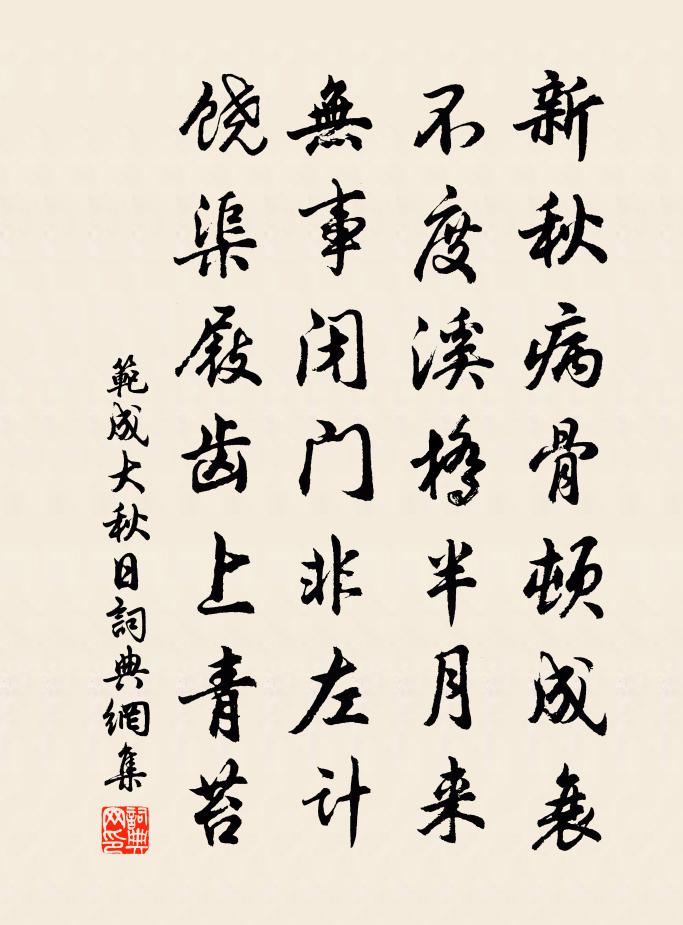 新秋病骨顿成衰
不度溪橋半月来
無事闭门非左计
饶渠屐齿上青苔
範成大秋日詞典網集
詞典网印